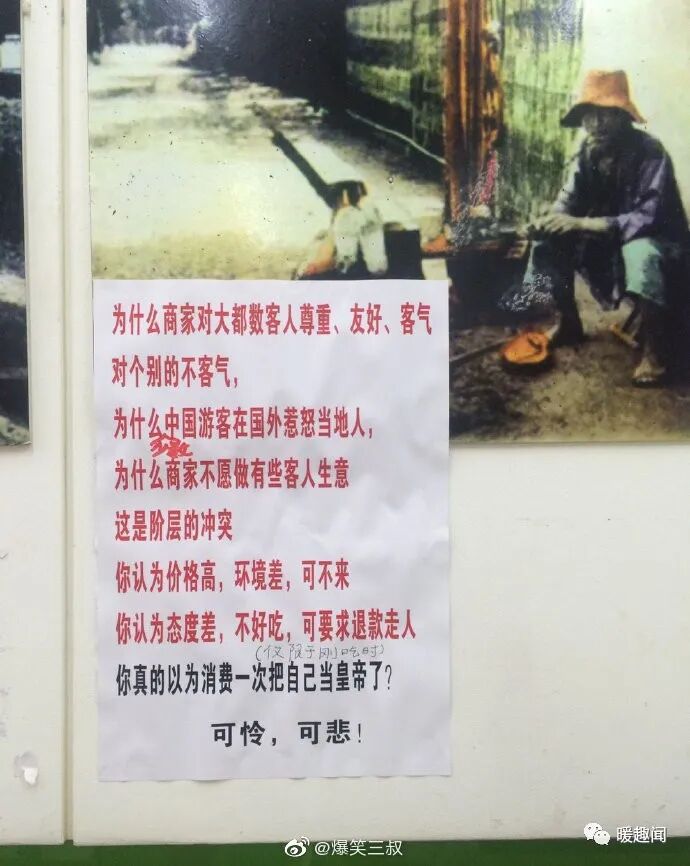 为什么商家对大都数客人尊重、友好、客气
对个别的不客气，
为什么中国游客在国外惹怒当地人，
为什么商家不愿做有些客人生意
这是阶层的冲突
你认为价格高，环境差，可不来
你认为态度差，不好吃，可要求退款走人
（仅限于刚吃时）
你真的以为消费一次把自己当皇帝了？
可怜，可悲！
@爆笑三叔
暖趣闻